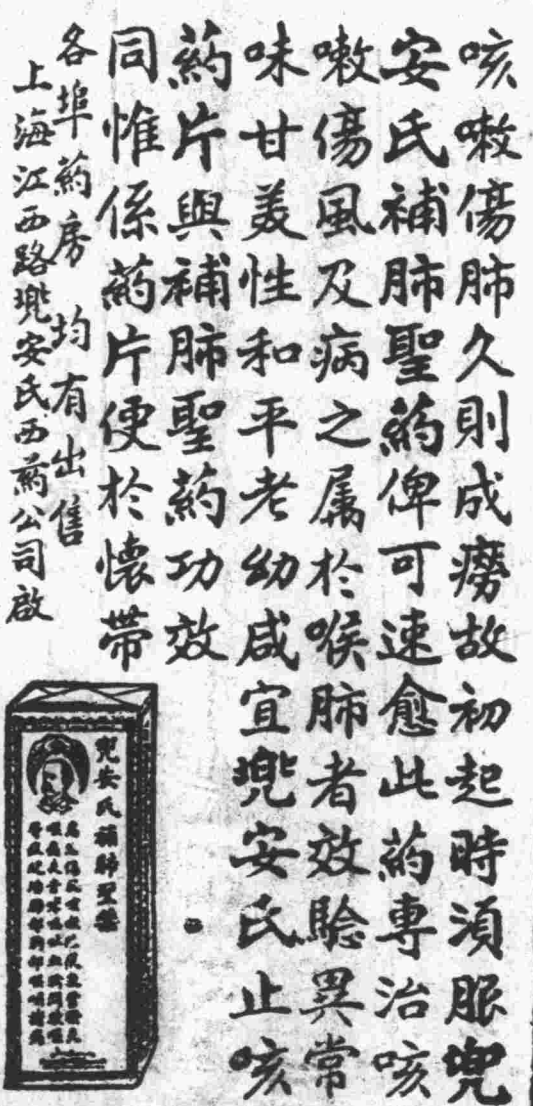 咳嗽傷肺久則成癆故初起時須服兜
安氏補肺聖藥俾可速愈此藥專治咳
嗽傷風及病之屬於喉肺者效驗異常
味甘美性和平老幼咸宜兜安氏止咳
藥片與補肺聖藥功效
同惟係藥片便於懷帶
各埠藥房均有出售
上海江西路兜安氏西藥公司啟
兜安氏補肺聖藥